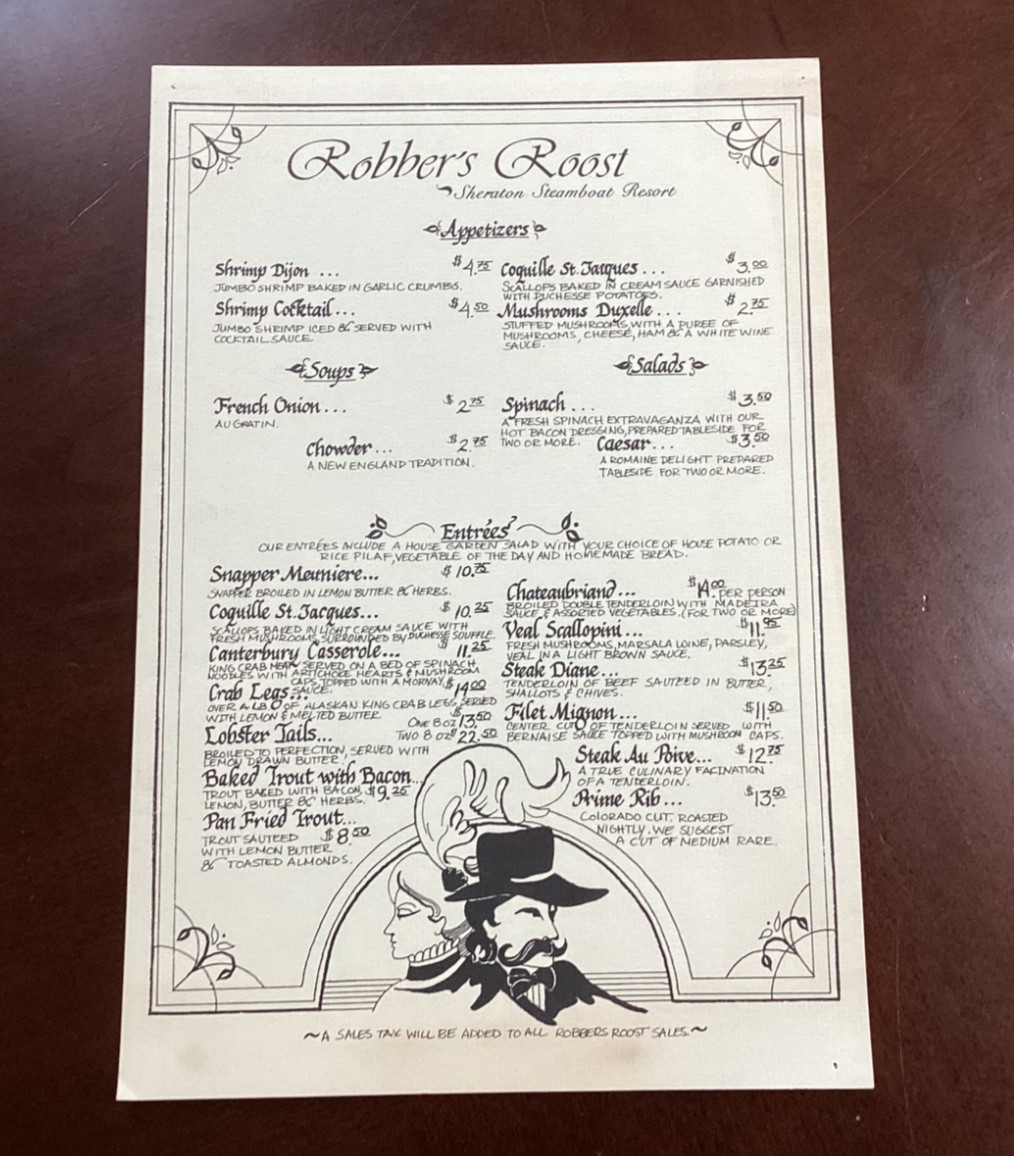 Robber's Roost
Sheraton Steamboat Resort
Appetizers
Shrimp Dijon ... $4.75
JUMBO SHRIMP BAKED IN GARLIC CRUMBS.
Shrimp Cocktail... $4.50
JUMBO SHRIMP ICED & SERVED WITH
COCKTAIL SAUCE
Coquille St. Jacques ... $3.00
SCALLOPS BAKED IN CREAM SAUCE GARNISHED
WITH DUCHESSE POTATOES.
Mushrooms Duxelle ... $2.75
STUFFED MUSHROOMS WITH A PUREE OF
MUSHROOMS, CHEESE, HAM & A WHITE WINE
SAUCE.
Soups
French Onion ... $2.75
AU GRATIN.
Chowder ... $2.75
A NEW ENGLAND TRADITION.
Salads
Spinach ... $3.50
A FRESH SPINACH EXTRAVAGANZA WITH OUR
HOT BACON DRESSING, PREPARED TABLESIDE FOR
TWO OR MORE.
Caesar ... $3.50
A ROMAINE DELIGHT PREPARED
TABLESIDE FOR TWO OR MORE.
Entrées
OUR ENTRÉES INCLUDE A HOUSE GARDEN SALAD WITH YOUR CHOICE OF HOUSE POTATO OR
RICE PILAF, VEGETABLE OF THE DAY AND HOMEMADE BREAD.
Snapper Meuniere... $10.75
SNAPPER BROILED IN LEMON BUTTER & HERBS.
Coquille St. Jacques... $10.25
SCALLOPS BAKED IN LIGHT CREAM SAUCE WITH
FRESH MUSHROOMS, SURROUNDED BY DUCHESSE SOUFFLE
Canterbury Casserole... $11.25
KING CRAB MEAT SERVED ON A BED OF SPINACH
NOODLES WITH ARTICHOKE HEARTS & MUSHROOM
CAPS, TOPPED WITH A MORNAY
SAUCE.
Crab Legs... $14.00
OVER A LB OF ALASKAN KING CRAB LEGS, SERVED
WITH LEMON & MELTED BUTTER.
Lobster Tails... ONE 8 OZ $13.50
TWO 8 OZ $22.50
BROILED TO PERFECTION, SERVED WITH
LEMON DRAWN BUTTER.
Baked Trout with Bacon...
TROUT BAKED WITH BACON, $9.25
LEMON, BUTTER & HERBS.
Pan Fried Trout...
TROUT SAUTEED $8.50
WITH LEMON BUTTER
& TOASTED ALMONDS.
Chateaubriand... $14.00 PER PERSON
BROILED DOUBLE TENDERLOIN WITH MADEIRA
SAUCE & ASSORTED VEGETABLES. (FOR TWO OR MORE)
Veal Scallopini... $11.95
FRESH MUSHROOMS, MARSALA WINE, PARSLEY,
VEAL IN A LIGHT BROWN SAUCE.
Steak Diane... $13.25
TENDERLOIN OF BEEF SAUTEED IN BUTTER,
SHALLOTS & CHIVES.
Filet Mignon... $11.50
CENTER CUT OF TENDERLOIN SERVED WITH
BERNAISE SAUCE TOPPED WITH MUSHROOM CAPS.
Steak Au Poive... $12.75
A TRUE CULINARY FACINATION
OF A TENDERLOIN.
Prime Rib... $13.50
COLORADO CUT, ROASTED
NIGHTLY. WE SUGGEST
A CUT OF MEDIUM RARE.
~A SALES TAX WILL BE ADDED TO ALL ROBBERS ROOST SALES.~